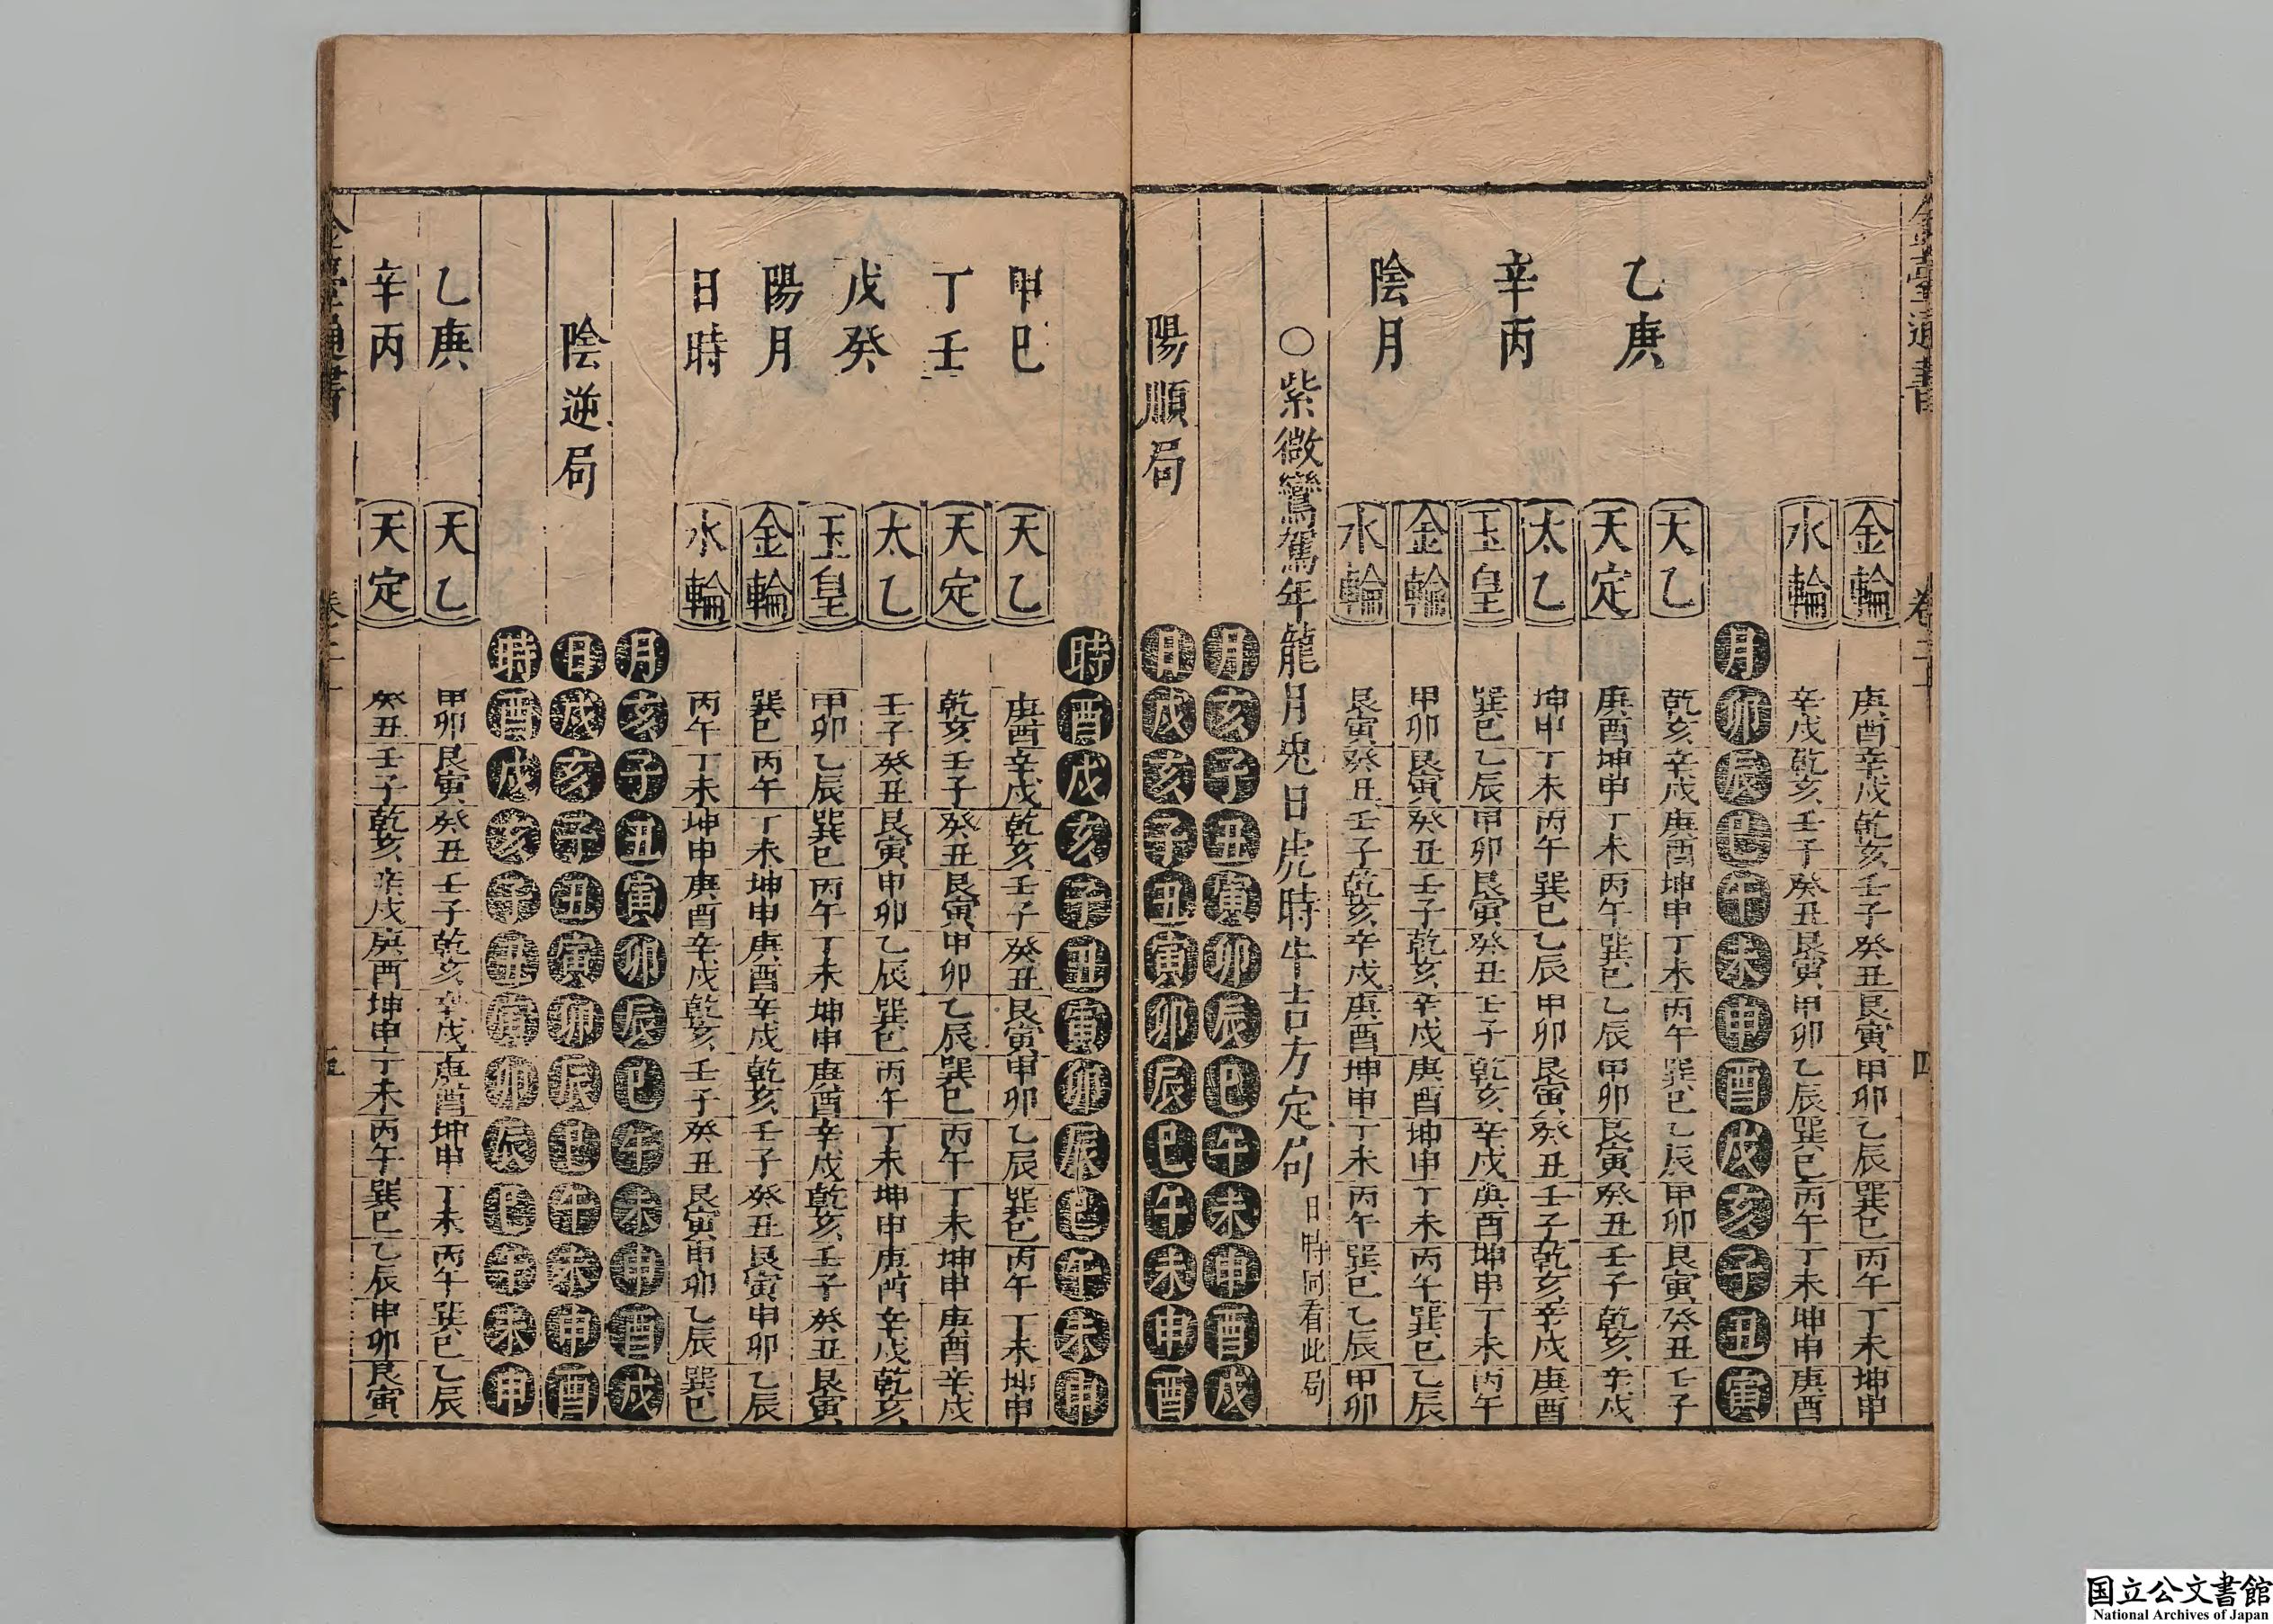 臺通書 卷 四
金輪 庚酉 辛戌 乾亥 壬子 癸丑 艮寅 甲卯 乙辰 巽巳 丙午 丁未 坤申
水輪 辛戌 乾亥 壬子 癸丑 艮寅 甲卯 乙辰 巽巳 丙午 丁未 坤申 庚酉
月 卯 辰 巳 午 未 申 酉 戌 亥 子 丑 寅
乙庚
辛丙
陰月
天乙 乾亥 辛戌 庚酉 坤申 丁未 丙午 巽巳 乙辰 甲卯 艮寅 癸丑 壬子
天定 庚酉 坤申 丁未 丙午 巽巳 乙辰 甲卯 艮寅 癸丑 壬子 乾亥 辛戌
太乙 坤申 丁未 丙午 巽巳 乙辰 甲卯 艮寅 癸丑 壬子 乾亥 辛戌 庚酉
玉皇 巽巳 乙辰 甲卯 艮寅 癸丑 壬子 乾亥 辛戌 庚酉 坤申 丁未 丙午
金輪 甲卯 艮寅 癸丑 壬子 乾亥 辛戌 庚酉 坤申 丁未 丙午 巽巳 乙辰
水輪 艮寅 癸丑 壬子 乾亥 辛戌 庚酉 坤申 丁未 丙午 巽巳 乙辰 甲卯
○紫微鸞駕年龍月兎日虎時牛吉方定局 日時同看此局
月 亥 子 丑 寅 卯 辰 巳 午 未 申 酉 戌
陽順局 日 戌 亥 子 丑 寅 卯 辰 巳 午 未 申 酉
時 酉 戌 亥 子 丑 寅 卯 辰 巳 午 未 申
甲己
丁壬
戊癸
陽月
日時
天乙 庚酉 辛戌 乾亥 壬子 癸丑 艮寅 甲卯 乙辰 巽巳 丙午 丁未 坤申
天定 乾亥 壬子 癸丑 艮寅 甲卯 乙辰 巽巳 丙午 丁未 坤申 庚酉 辛戌
太乙 壬子 癸丑 艮寅 甲卯 乙辰 巽巳 丙午 丁未 坤申 庚酉 辛戌 乾亥
玉皇 甲卯 乙辰 巽巳 丙午 丁未 坤申 庚酉 辛戌 乾亥 壬子 癸丑 艮寅
金輪 巽巳 丙午 丁未 坤申 庚酉 辛戌 乾亥 壬子 癸丑 艮寅 甲卯 乙辰
水輪 丙午 丁未 坤申 庚酉 辛戌 乾亥 壬子 癸丑 艮寅 甲卯 乙辰 巽巳
月 亥 子 丑 寅 卯 辰 巳 午 未 申 酉 戌
陰逆局 日 戌 亥 子 丑 寅 卯 辰 巳 午 未 申 酉
時 酉 戌 亥 子 丑 寅 卯 辰 巳 午 未 申
乙庚 天乙 甲卯 艮寅 癸丑 壬子 乾亥 辛戌 庚酉 坤申 丁未 丙午 巽巳 乙辰
辛丙 天定 癸丑 壬子 乾亥 辛戌 庚酉 坤申 丁未 丙午 巽巳 乙辰 甲卯 艮寅
臺通書 五
国立公文書館
National Archives of Japan